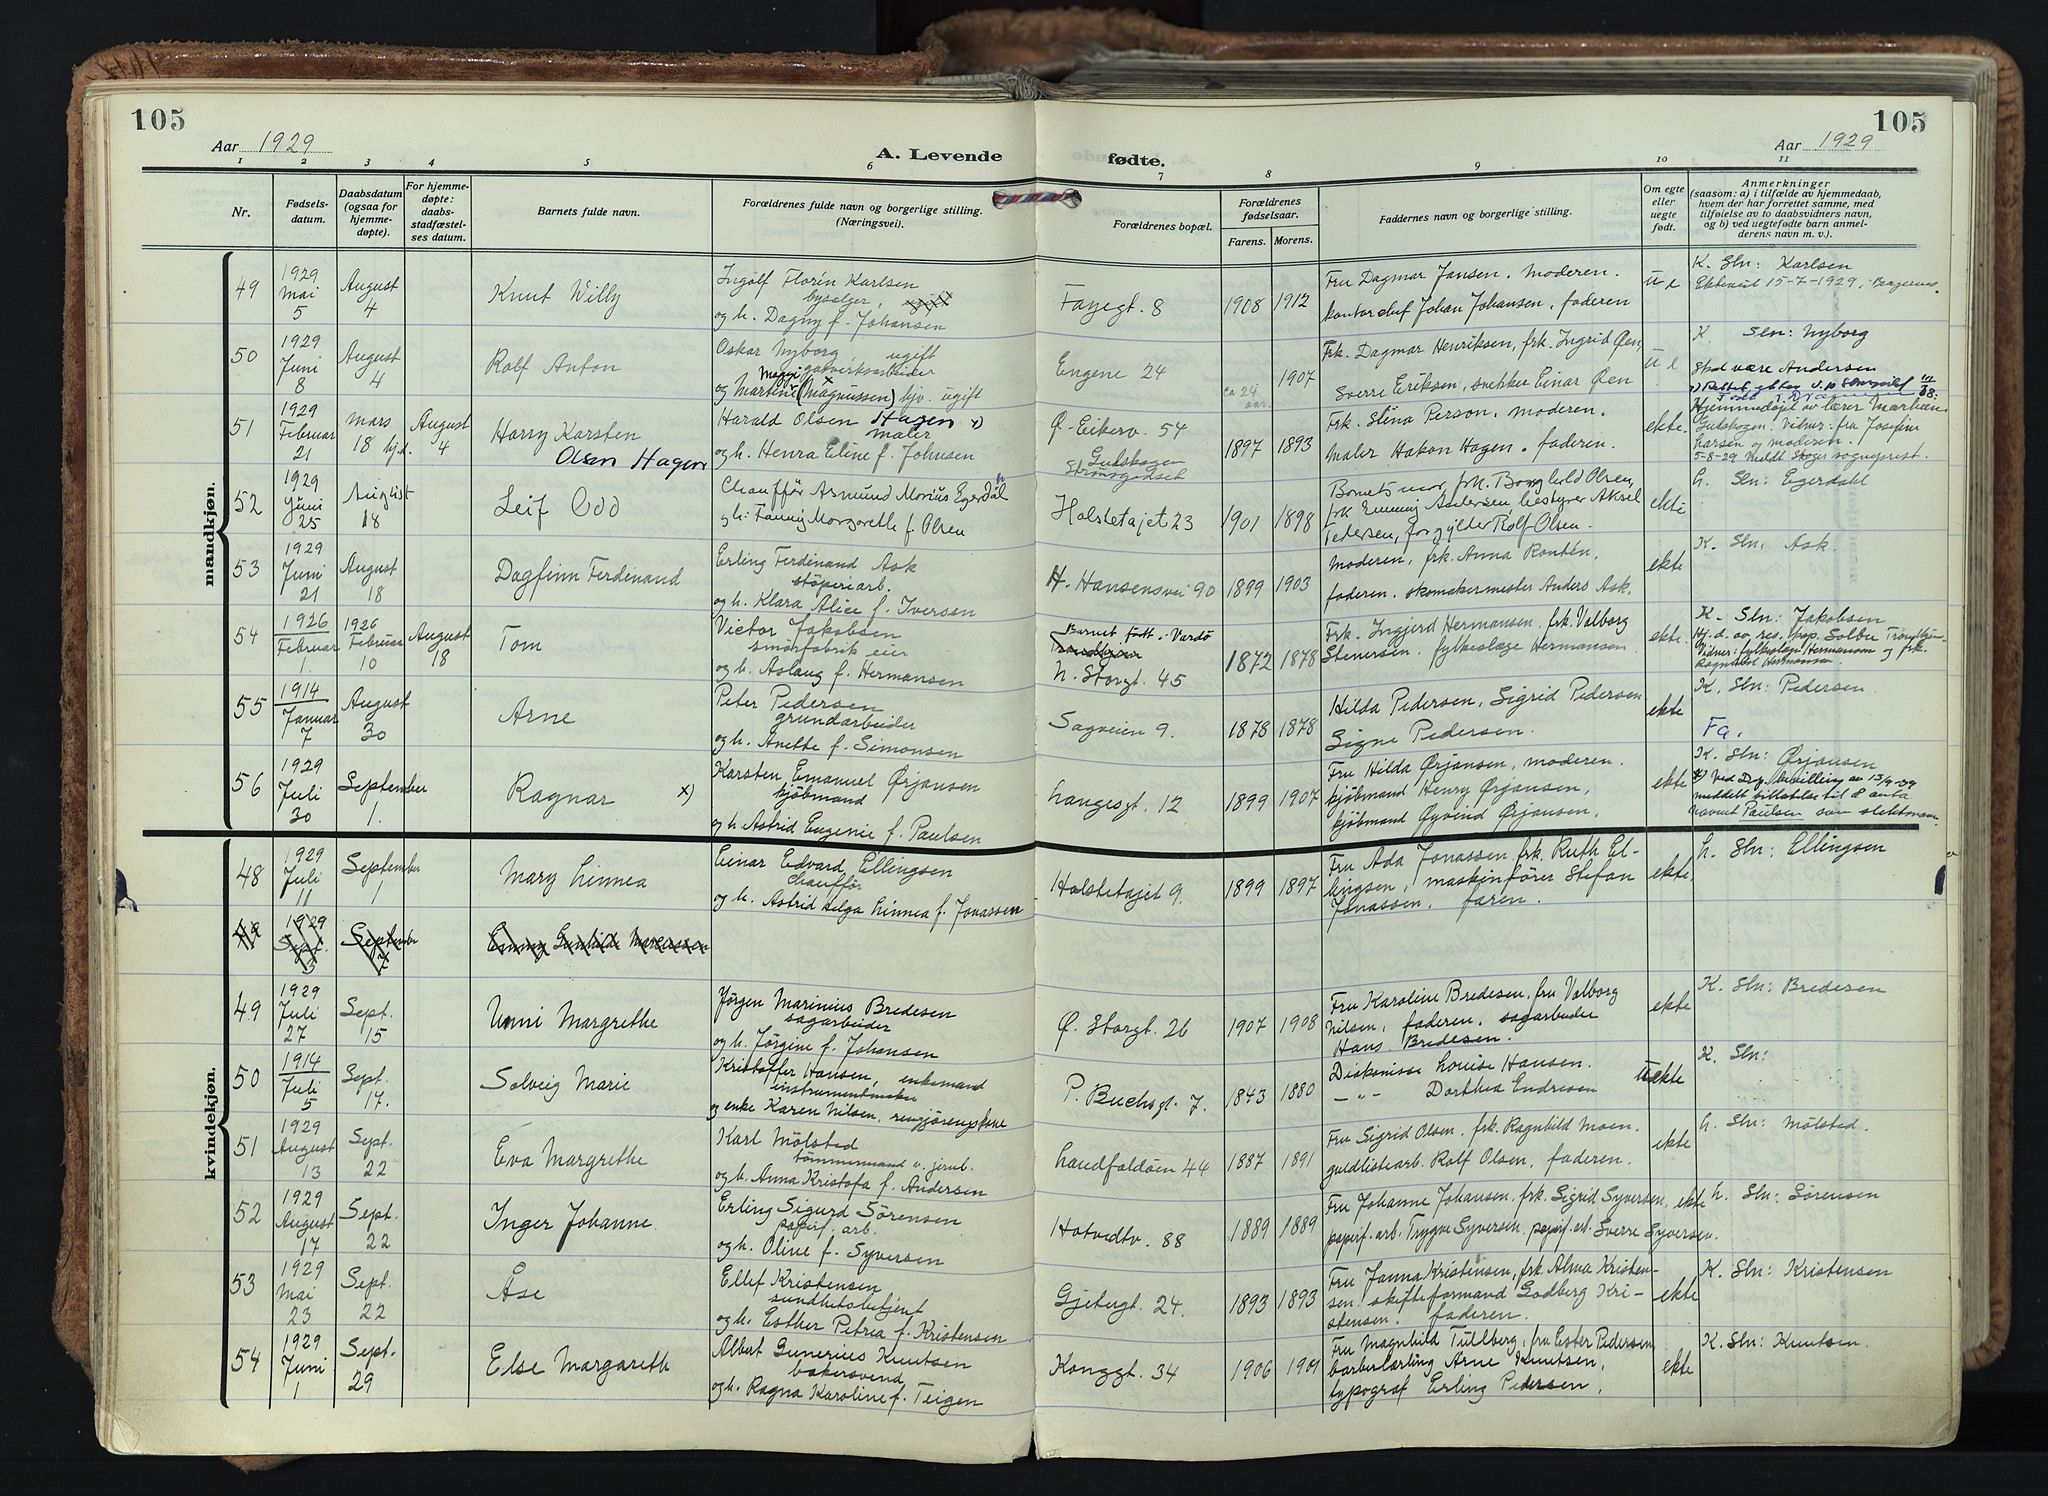 105
105
Aar 1929
A. Levende fødte.
Aar 1929
1 2 3 4 5 6 7 8 9 10 11
Nr.
Fødsels-
datum.
Daabsdatum
(ogsaa for
hjemme-
døpte).
For hjemme-
døpte:
daabs-
stadfæstel-
ses datum.
Barnets fulde navn.
Forældrenes fulde navn og borgerlige stilling.
(Næringsvei).
Forældrenes bopæl.
Forældrenes
fødselsaar.
Farens. Morens.
Faddernes navn og borgerlige stilling.
Om egte
eller
uegte
født.
Anmerkninger
(saasom: a) i tilfælde av hjemmedaab,
hvem der har forrettet samme, med
tilføielse av to daabsvidners navn,
og b) ved uegtefødte barn anmel-
derens navn m. v.).
mandkjøn.
49
1929
Mai
5
August
4
Knut Willy
Ingolf Florin Karlsen
bysælger,
og h. Dagny f. Johansen
Fayegt. 8
1908 1912
Fru Dagmar Jansen. moderen.
kontorchef Johan Johansen, faderen
u e
K. Sln: Karlsen
Ektevut 15-7-1929, Bragernes.
50
1929
Juni
8
August
4
Rolf Anton
Oskar Nyborg, ugift
gatverksarbeider
og Martine (Magnussen) hjv. ugift
Engene 24
ca 29
aar.
1907
Frk. Dagmar Henriksen, frk. Ingrid Øen,
Sverre Eriksen, snekker Einar Øen
u e
K Sln: Nyborg
Skal være Andersen
51
1929
Februar
21
Mars
18 hjd.
August
4
Harry Karsten
Olsen Hagen
Harald Olsen Hagen x)
maler
og h. Henra Eline f. Johnsen
Ø. Eikerv. 54
Gulskogen
Strømsgodset
1897 1893
Frk. Stina Person, moderen.
maler Hakon Hagen. faderen.
ekte.
Hjemmedøpt av lærer Marhaug
Gulskogen. Vidner: fru Josefine
Larsen og moderen.
5-8-29 meldt Skoger sogneprest.
52
1929
Juni
25
August
18
Leif Odd
Chauffør Asmund Morius Egerdal
og h. Fanny Margarethe f. Olsen
Holstetajet 23
1901 1898
Barnets mor, frk. Borghild Olsen,
frk Emmy Andersen, bestyrer Aksel
Pedersen, forgylder Rolf Olsen.
ekte
L. Sln: Egerdahl
53
1929
Juni
21
August
18
Dagfinn Ferdinand
Erling Ferdinand Ask
støperiarb.
og h. Klara Alice f. Iversen
H. Hansensvei 90
1899 1903
Moderen, frk. Anna Rontén,
faderen. skomakermester Anders Ask.
ekte
K. Sln. Ask.
54
1926
Februar
1.
1926
Februar
10
August
18
Tom
Victor Jakobsen
smørfabrik eier
og h. Aslaug f. Hermansen
Barnet født. Vardø
N. Storgt. 45
1872 1878
Frk. Ingjerd Hermansen, frk. Valborg
Stenersen. fylkeslæge Hermansen
ekte.
K. Sln: Jakobsen
Hj. d. av res. kap. Solbu
Vidner: fylkeslæge Hermansen og frk.
Ragnhild Hermansen.
55
1914
Januar
7
August
30
Arne
Peter Pedersen
grundarbeider
og h. Anette f. Simonsen
Sagveien 9.
1878 1878
Hilda Pedersen, Sigrid Pedersen
Signe Pedersen.
ekte
K. Sln: Pedersen.
Fa.
56
1929
Juli
30
September
1.
Ragnar x)
Karsten Emanuel Ørjansen
kjøbmand
og h. Astrid Eugenie f. Paulsen
Langesgt. 12
1899 1907
Fru Hilda Ørjansen, moderen.
kjøbmand Henry Ørjansen,
kjøbmand Øyvind Ørjansen.
ekte
K. Sln: Ørjansen
x) Ved bevilling av 13/9-39
meddelt tillatelse til å anta
navnet Paulsen som slektsnavn.
kvindekjøn.
48
1929
Juli
11
September
1
Mary Linnea
Einar Edvard Ellingsen
chauffør
og h. Astrid Helga Linnea f. Jonassen
Holstetajet 9.
1899 1897
Fru Ada Jonassen, frk. Ruth El-
lingsen, maskinfører Stefan
Jonassen, faren.
ekte.
L. Sln: Ellingsen
1929
Sept.
3
September
Emmy Gunhilde
49
1929
Juli
27
Sept.
15
Unni Margrethe
Jørgen Marinius Bredesen
sagarbeider
og h. Jørgine f. Johansen
Ø. Storgt. 26
1907 1908
Fru Karoline Bredesen, fru Valborg
Nilsen, faderen, sagarbeider
Hans Bredesen.
ekte
K. Sln: Bredesen
50
1914
Juli
5
Sept.
17.
Solveig Marie
Kristoffer Hansen, enkemand
instrumentmaker
og enke Karen Nilsen, rengjøringskone
P. Buchsgt 7.
1843 1880
Diakonisse Louise Hansen.
— " — Dorthea Endresen
uekte
K. Sln:
51
1929
August
13
Sept.
22
Eva Margrethe
Karl Mølsted
tømmermand v. jernb.
og h. Anna Kristofa f. Andersen
Landfaldøen 44
1887 1891
Fru Sigrid Olsen, frk. Ragnhild Moen.
guldlistearb. Rolf Olsen, faderen.
ekte
L. Sln: Mølsted.
52
1929
August
17
Sept.
22
Inger Johanne.
Erling Sigurd Sørensen
papirf. arb.
og h. Oline f. Syversen
Hotvedtv. 88
1889 1889
Fru Johanne Johansen, frk. Sigrid Syversen,
papirf. arb. Trygve Syversen. papirf. arb. Sverre Syversen.
ekte
L. Sln: Sørensen
53
1929
Mai
23
Sept.
22
Åse
Ellef Kristensen
sundhetsbetjent
og h. Esther Petrea f. Kristensen
Gjetergt. 24.
1893 1893
Fru Janna Kristensen, frk. Alma Kristen-
sen. skifteformand Godberg Kri-
stensen. faderen.
ekte
K. Sln: Kristensen
54
1929
Juni
1
Sept.
29
Else Margareth
Albert Gunerius Knutsen
bakersvend
og h. Ragna Karoline f. Teigen
Konggt. 34
1906 1901
Fru Magnhild Tullberg, fru Ester Pedersen
barberlærling Arne Knutsen,
typograf Erling Pedersen,
ekte
K. Sln: Knutsen.